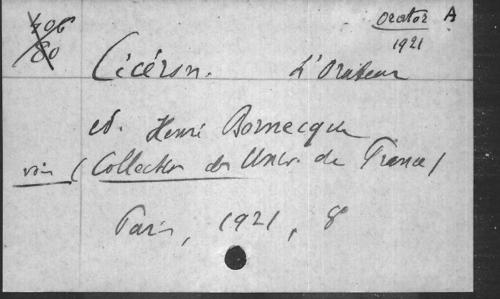 406
80
Orator A
1921
Cicéron. L'Orateur
ed. Henri Bornecque
voir (Collection des Univ. de France)
Paris, 1921, 8°